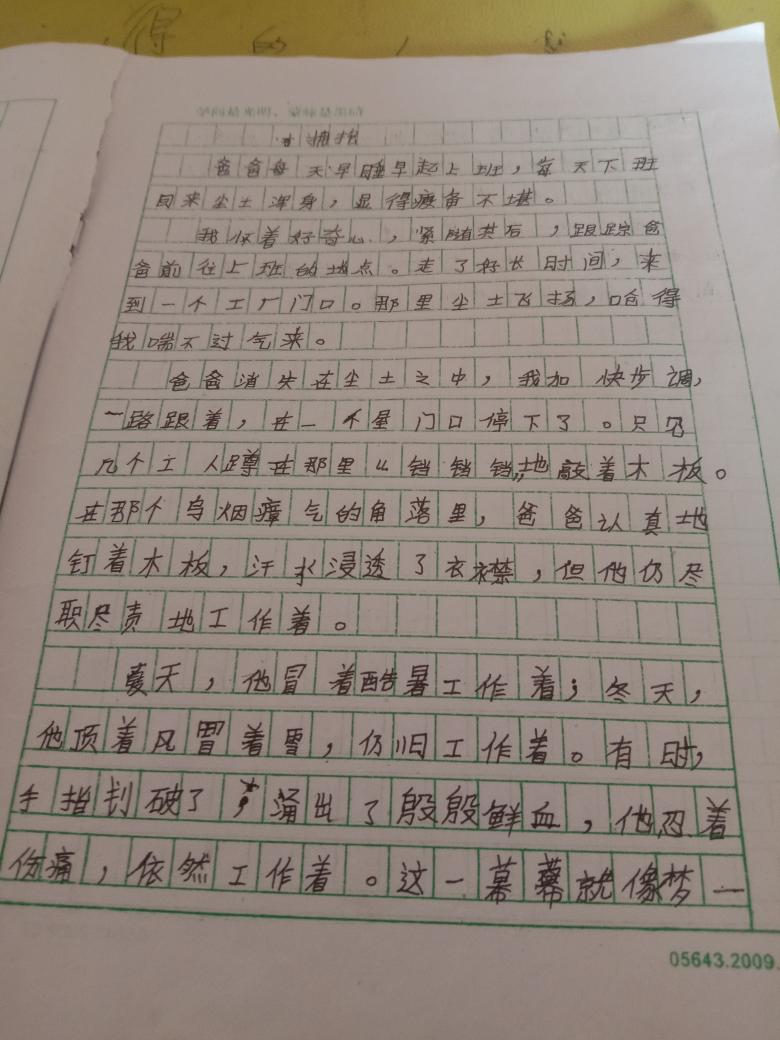 得 的 人
学问是光明，蒙昧是黑暗
拥抱
爸爸每天早睡早起上班，每天下班
回来尘土浑身，显得疲备不堪。
我怀着好奇心，紧随其后，跟踪爸
爸前往上班的地点。走了好长时间，来
到一个工厂门口。那里尘土飞扬，呛得
我喘不过气来。
爸爸消失在尘土之中，我加快步调，
一路跟着，在一个屋门口停下了。只见
几个工人蹲在那里“铛铛铛”地敲着木板。
在那个乌烟瘴气的角落里，爸爸认真地
钉着木板，汗水浸透了衣襟，但他仍尽
职尽责地工作着。
夏天，他冒着酷暑工作着；冬天，
他顶着风冒着雪，仍旧工作着。有时，
手指划破了，涌出了殷殷鲜血，他忍着
伤痛，依然工作着。这一幕幕就像梦一
05643.2009.